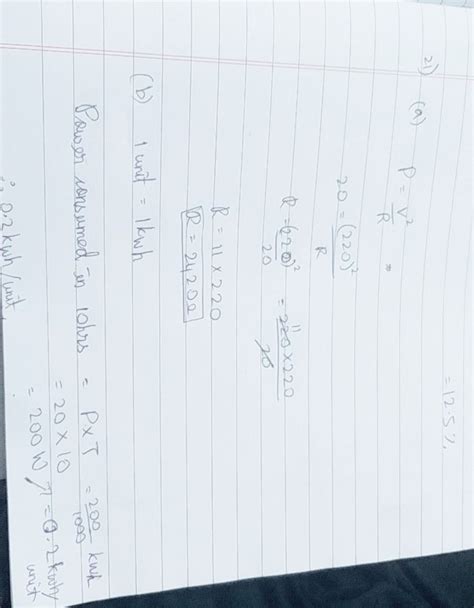 = 12.5%
21) (a) P = V²/R =
20 = (220)²/R
R = (220)²/20 = 220 × 220/20 11
R = 11 × 220
R = 24,200
(b) 1 unit = 1 kwh
Power consumed in 10hrs = P×T = 200/1000 kwh
= 20 × 10
= 200 W = 0.2 kwh/unit
∴ 0.2 kwh/unit